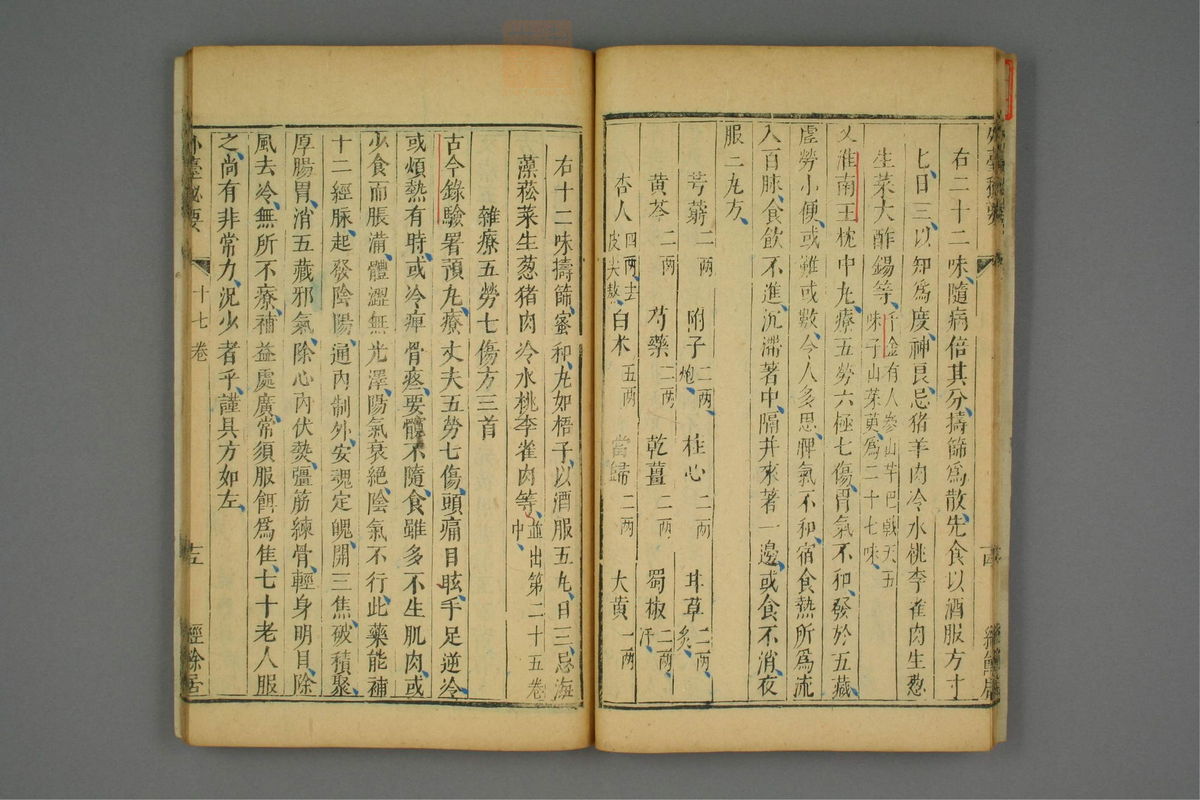 右二十二味隨病倍其分擣篩爲散先食以酒服方寸
匕日三以知爲度神良忌猪羊肉冷水桃李雀肉生葱
生菜大酢餳等千金有人參山芋巴戟天五
味子山茱萸爲二十七味
又淮南王枕中丸療五勞六極七傷胃氣不和發於五藏
虚勞小便或難或數令人多思脾氣不和宿食熱所爲流
入百脉食飲不進沉滯著中隔并來著一邊或食不消夜
服二丸方
芎藭二兩 附子二兩炮 桂心二兩 甘草二兩炙
黄芩二兩 芍藥二兩 乾薑二兩 蜀椒二兩汗
杏人四兩去皮尖熬 白术五兩 當歸二兩 大黄一兩
右十二味擣篩蜜和丸如梧子以酒服五丸日三忌海
藻菘菜生葱猪肉冷水桃李雀肉等並出第二十五卷
中
雜療五勞七傷方三首
古今錄驗署預丸療丈夫五勞七傷頭痛目眩手足逆冷
或煩熱有時或冷痺骨疼要髖不隨食雖多不生肌肉或
少食而脹滿體澀無光澤陽氣衰絶陰氣不行此藥能補
十二經脉起發陰陽通内制外安魂定魄開三焦破積聚
厚腸胃消五藏邪氣除心内伏熱彊筋練骨輕身明目除
風去冷無所不療補益處廣常須服餌爲佳七十老人服
之尚有非常力況少者乎謹具方如左
外臺秘要
十七卷
十五
經餘居